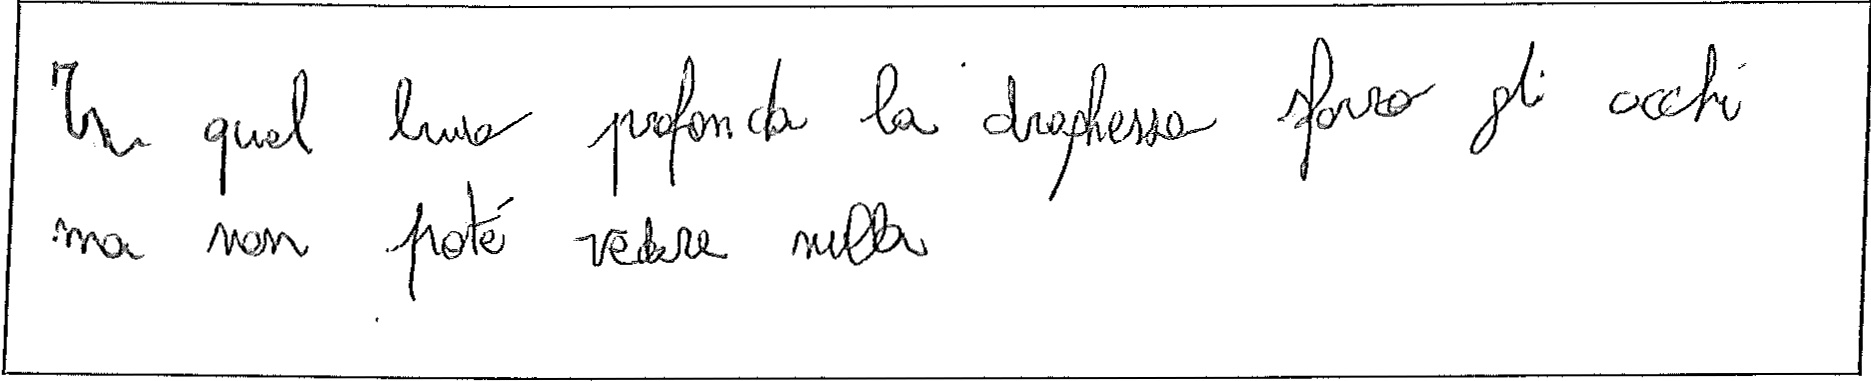 In quel buio profondo la draghessa sforzo gli occhi
ma non poté vedere nulla